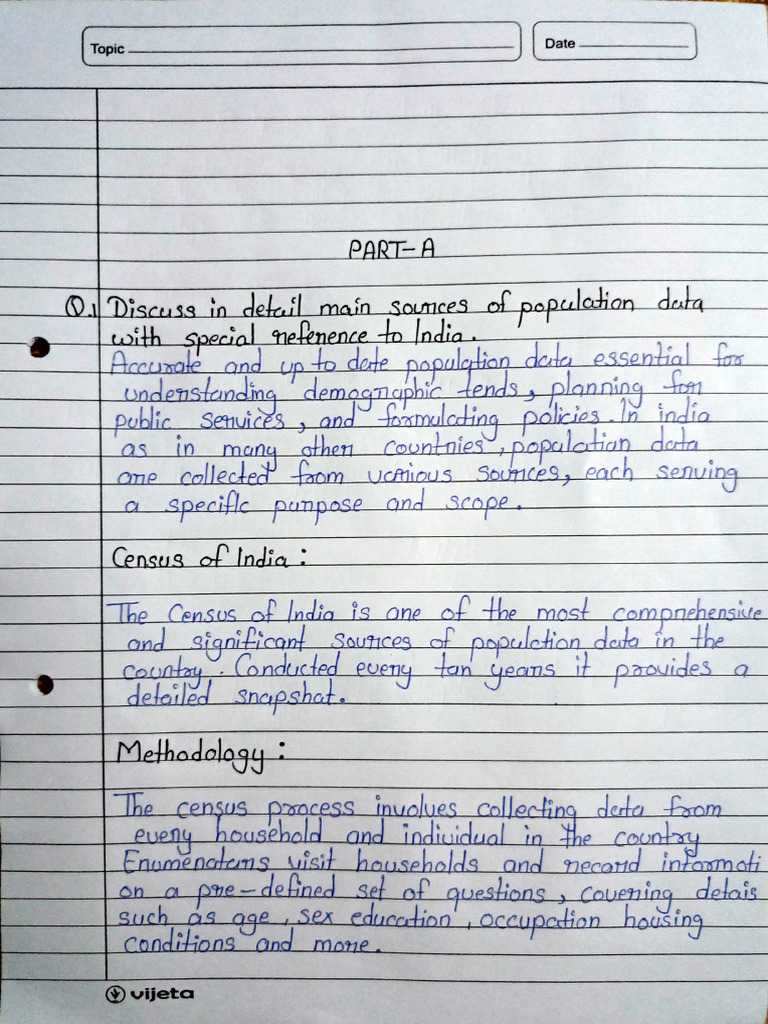 Topic
Date
PART-A
Q.1 Discuss in detail main sources of population data
with special reference to India.
Accurate and up to date population data essential for
understanding demographic tends, planning for
public services, and formulating policies. In india
as in many other countries, population data
are collected from various sources, each serving
a specific purpose and scope.
Census of India :
The Census of India is one of the most comprehensive
and significant sources of population data in the
country. Conducted every tan years it provides a
detailed snapshat.
Methodology :
The census process involves collecting data from
every household and individual in the country
Enumenators visit households and record informati
on a pre-defined set of questions, covering detais
such as age, sex education, occupation housing
conditions and more.
vijeta